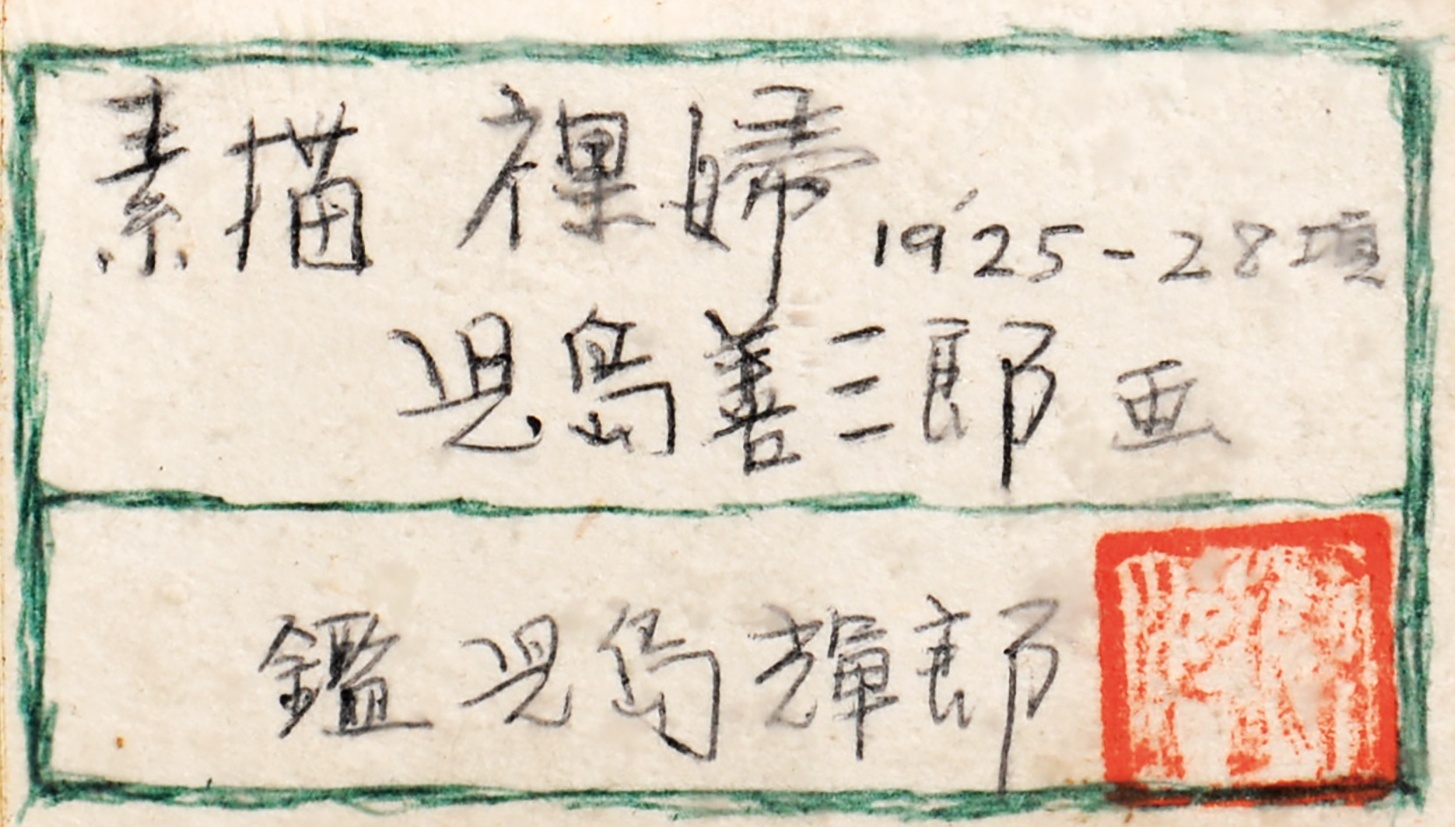 素描 裸婦 1925-28頃
児島善三郎 画
鑑 児島輝郎